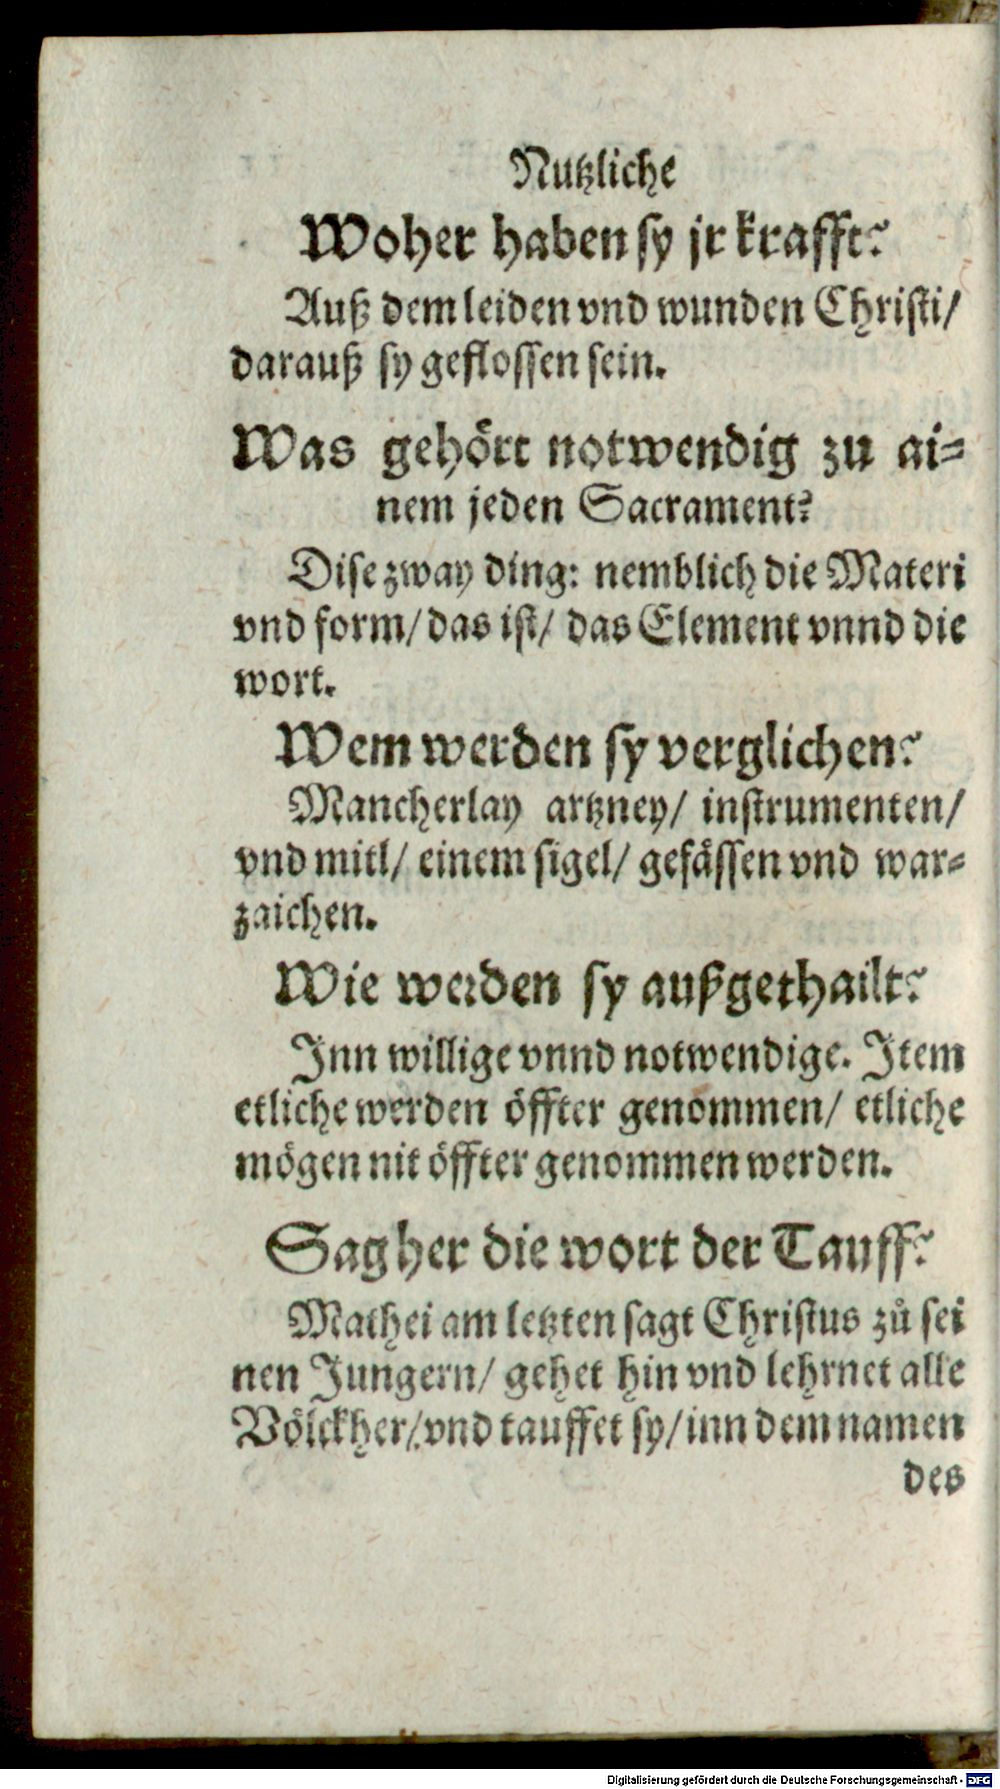 Nutzliche
Woher haben sy jr krafft?
Auß dem leiden vnd wunden Christi/
darauß sy geflossen sein.
Was gehört notwendig zu ai-
nem jeden Sacrament?
Dise zway ding: nemblich die Materi
vnd form/ das ist/ das Element vnnd die
wort.
Wem werden sy verglichen?
Mancherlay artzney/ instrumenten/
vnd mitl/ einem sigel/ gefässen vnd war-
zaichen.
Wie werden sy außgethailt?
Inn willige vnnd notwendige. Item
etliche werden öffter genommen/ etliche
mögen nit öffter genommen werden.
Sag her die wort der Tauff?
Mathei am letzten sagt Christus zů sei
nen Jungern/ gehet hin vnd lehrnet alle
Völckher/ vnd tauffet sy/ inn dem namen
des
Digitalisierung gefördert durch die Deutsche Forschungsgemeinschaft - DFG